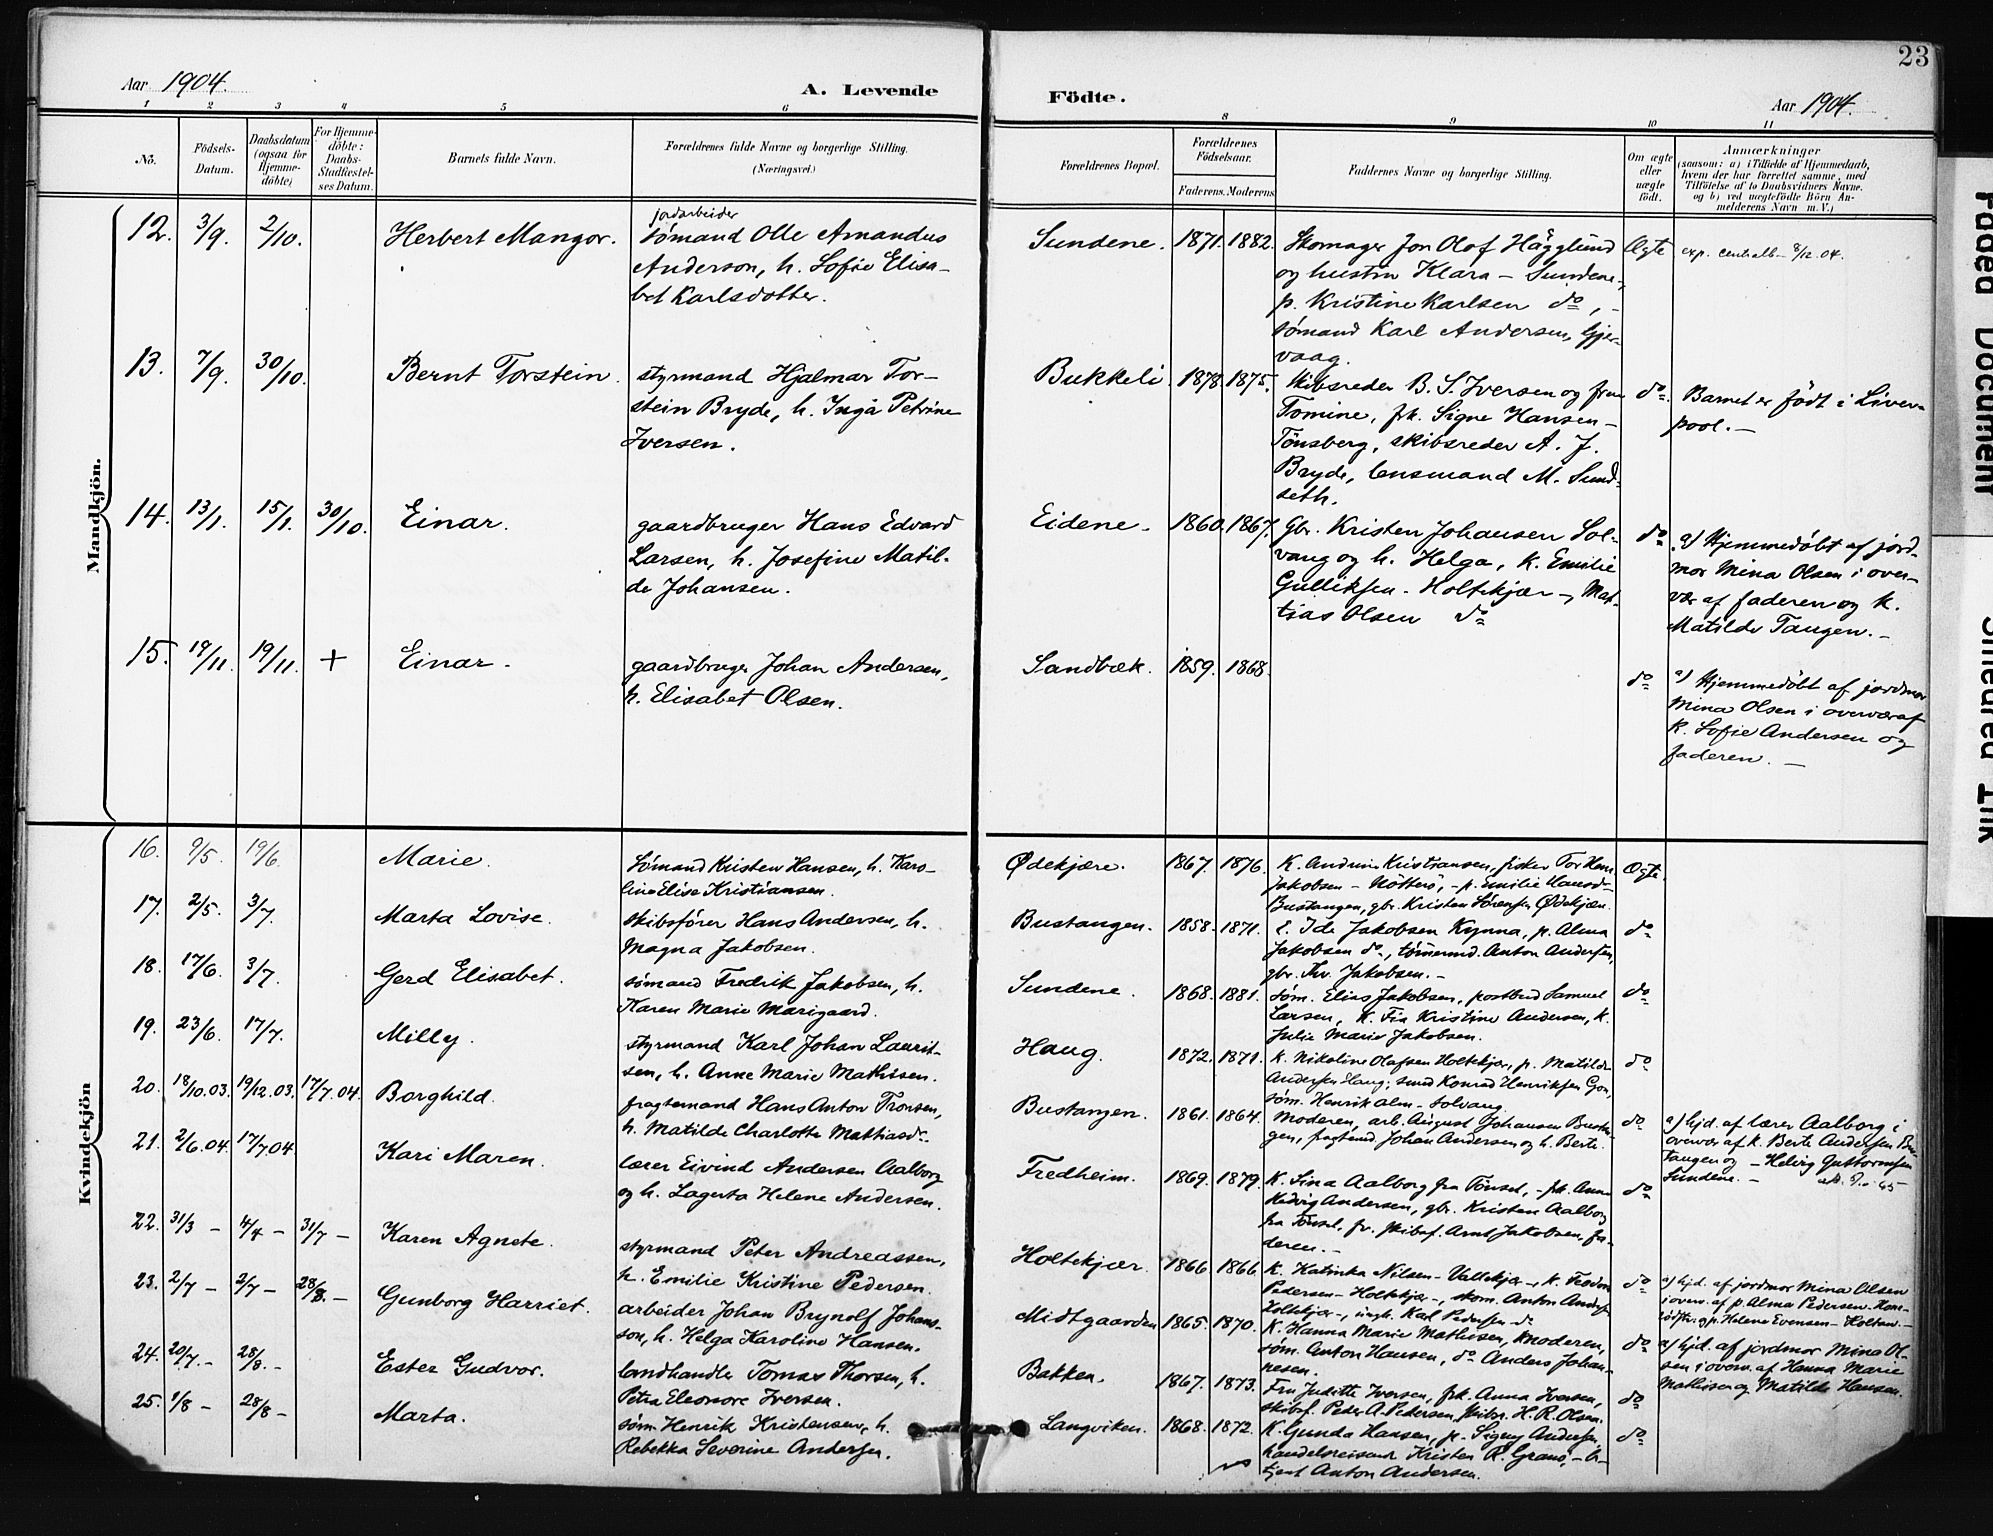 23
Aar 1904.
A. Levende
Födte.
Aar 1904.
1 2 3 4 5 6 8 9 10 11
No.
Födsels-Datum.
Daabsdatum (ogsaa for Hjemme-döbte)
For Hjemme-döbte: Daabs-Stadfæstel-ses Datum.
Barnets fulde Navn.
Forældrenes fulde Navne og borgerlige Stilling. (Næringsvei.)
Forældrenes Bopæl.
Forældrenes Födselsaar.
Faderens. Moderens.
Faddernes Navne og borgerlige Stilling.
Om ægte eller uægte födt.
Anmærkninger
(saasom: a) i Tilfælde af Hjemmedaab,
hvem der har forrettet samme, med
Tilföielse af to Daabsvidners Navne.
og b) ved uægtefödte Börn An-
melderens Navn m. V.)
Mandkjön.
12. 3/9. 2/10. Herbert Mangor.
jordarbeider
sømand Olle Amandus
Anderson, h. Sofie Elisa-
bet Karlsdotter.
Sundene. 1871. 1882.
Skomager Jon Olof Hägglund
og hustru Klara – Sundene,
p. Kristine Karlsen do, –
sømand Karl Andersen, Gjer-
vaag.
Ægte
exp. centralb – 8/12.04.
13. 7/9. 30/10. Bernt Torstein.
styrmand Hjalmar Tor-
stein Bryde, h. Inga Petrine
Iversen.
Bukkeli. 1878. 1875.
skibsreder B. S. Iversen og frue
Tomine, frk. Signe Hansen –
Tönsberg, skibsreder A. J.
Bryde, lensmand M. Sund-
seth.
do.
Barnet er födt i Liver-
pool. –
14. 13/1. 15/1. 30/10. Einar.
gaardbruger Hans Edvard
Larsen, h. Josefine Matil-
de Johansen.
Eidene. 1860. 1867.
Gbr. Kristen Johansen Sol-
vang og h. Helga, k. Emilie
Gulliksen. Holtekjær –, Mat-
tias Olsen do
do
a) Hjemmedøbt af jord-
mor Mina Olsen i over-
vær af faderen og k.
Matilde Tangen. –
15. 19/11. 19/11. + Einar.
gaardbruger Johan Andersen,
h. Elisabet Olsen.
Sandbæk. 1859. 1868.
do
a) Hjemmedöbt af jordmor
Mina Olsen i overvær af
k. Sofie Andersen og
faderen. –
Kvindekjön
16. 9/5. 19/6. Marie.
Sømand Kristen Hansen, h. Karo-
line Elise Kristiansen.
Ødekjære. 1867. 1876.
K. Andrine Kristiansen, fisker Tor Hans
Jakobsen – Nötterö, – p. Emilie
Bustangen, gbr. Kristen Sörensen Ødekjær.
Ægte.
17. 2/5. 3/7. Marta Lovise.
skibsförer Hans Andersen, h.
Magna Jakobsen.
Bustangen. 1858. 1871.
Ide Jakobsen Kynna, p. Alma
Jakobsen do, tømermd. Anton Andersen,
gbr. Jakobsen. –
do
18. 17/6. 3/7. Gerd Elisabet.
sømand Fredrik Jakobsen, h.
Karen Marie Marigaard.
Sundene. 1868. 1881.
søm. Elias Jakobsen, postbud Samuel
Larsen, k. Fia Kristine Andersen, k.
Julie Marie Jakobsen.
do
19. 23/6. 17/7. Milly.
styrmand Karl Johan Laurit-
sen, h. Anne Marie Mathissen.
Haug. 1872. 1871.
k. Nikoline Olafsen Holtekjær, p. Matilde
Andersen Haug, smed Konrad Henriksen
søm. Henrik Alm – Solvang.
do
20. 18/10.03. 19/12.03. 17/7.04. Borghild.
fragtemand Hans Anton Tronsen,
h. Matilde Charlotte Mathiasdr.
Bustangen. 1861. 1864.
Moderen, arb. August Johansen Bustan-
gen, fragtmd. Johan Andersen og h. Berte.
do
a) hjd. af lærer Aalborg i
overvær af k. Berte Andersen Bu-
tangen og – Helvig Guttormsen
Sundene. –
21. 2/6.04. 17/7.04 Kari Maren.
lærer Eivind Andersen Aalborg
og h. Lagerta Helene Andersen.
Fredheim. 1869. 1879.
K. Sina Aalborg fra Tönset, – frk. Anna
Hedvig Andersen, gbr. Kristen Aalborg
fra Tönset, fv. skibsf. Arnt Jakobsen, fa-
deren. –
do
22. 31/3 – 4/4 – 31/7 – Karen Agnete.
styrmand Peter Andreassen,
h. Emilie Kristine Pedersen.
Holtekjær. 1866. 1866.
K. Katinka Nilsen – Vallekjær –, k. Teodora
Pedersen – Holtekjær –, skom. Anton Anders.
Holtekjær –, ungk. Karl Pedersen do
do
a) hjd. af jordmor Mina Olsen
i overv. af p. Alma Pedersen
og p. Helene Evensen – Holtan. –
23. 2/7 – 2/7 – 28/8. – Gunborg Harriet.
arbeider Johan Brynolf Johans-
son, h. Helga Karoline Hansen.
Midtgaarden 1865. 1870.
K. Hanna Marie Mathisen, moderen,
søm. Anton Hansen, do Anders Johan-
nesen.
do
a) hjd. af jordmor Mina Ol-
sen i overv. af Hanna Marie
Mathisen og Matilde Hansen.
24. 20/7. – 28/8. – Ester Gudvor.
landhandler Tomas Thorsen, h.
Petra Eleonore Iversen.
Bakken. 1867. 1873.
Fru Juditte Iversen, frk. Anna Iversen,
skibsf. Peder A. Pedersen, skibsr. H. R. Olsen.
do
25. 1/8 – 28/8 – Marta.
søm. Henrik Kristensen, h.
Rebekka Severine Andersen.
Langviken. 1868. 1872.
K. Gunda Hansen, p. Signy Andersen,
handelsreisende Kristen R. Granö, –
Anton Andersen.
do
Faded Document
Smeared Ink